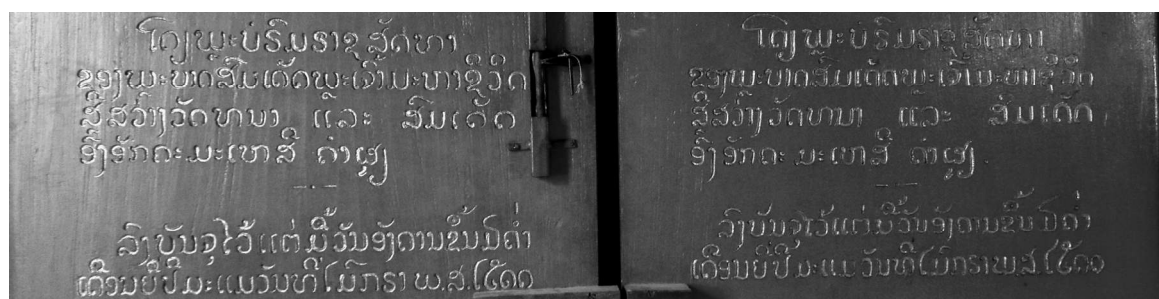 ໂດຽພຼະບໍຣົມຣາຊສັດທາ
ຂອງພຼະບາດສົມເດັດພຼະເຈົ້າມະຫາຊີວິດ
ສີສວ່າງວັດທນາ ແລະ ສົມເດັດ
ອົງອັກຄະມະເຫສີ ຄຳຜູຽ
ລົງບັນຈຸໄວ້ແຕ່ມື້ວັນອັງຄານຂຶ້ນ໓ຄ່ຳ
ເດືອນຍີ່ປີມະແມວັນທີ່໒ມົກຣາພ.ສ.໒໕໑໑
ໂດຽພຼະບໍຣົມຣາຊສັດທາ
ຂອງພຼະບາດສົມເດັດພຼະເຈົ້າມະຫາຊີວິດ
ສີສວ່າງວັດທນາ ແລະ ສົມເດັດ
ອົງອັກຄະມະເຫສີ ຄຳຜູຽ
ລົງບັນຈຸໄວ້ແຕ່ມື້ວັນອັງຄານຂຶ້ນ໓ຄ່ຳ
ເດືອນຍີ່ປີມະແມວັນທີ່໒ມົກຣາພ.ສ.໒໕໑໑